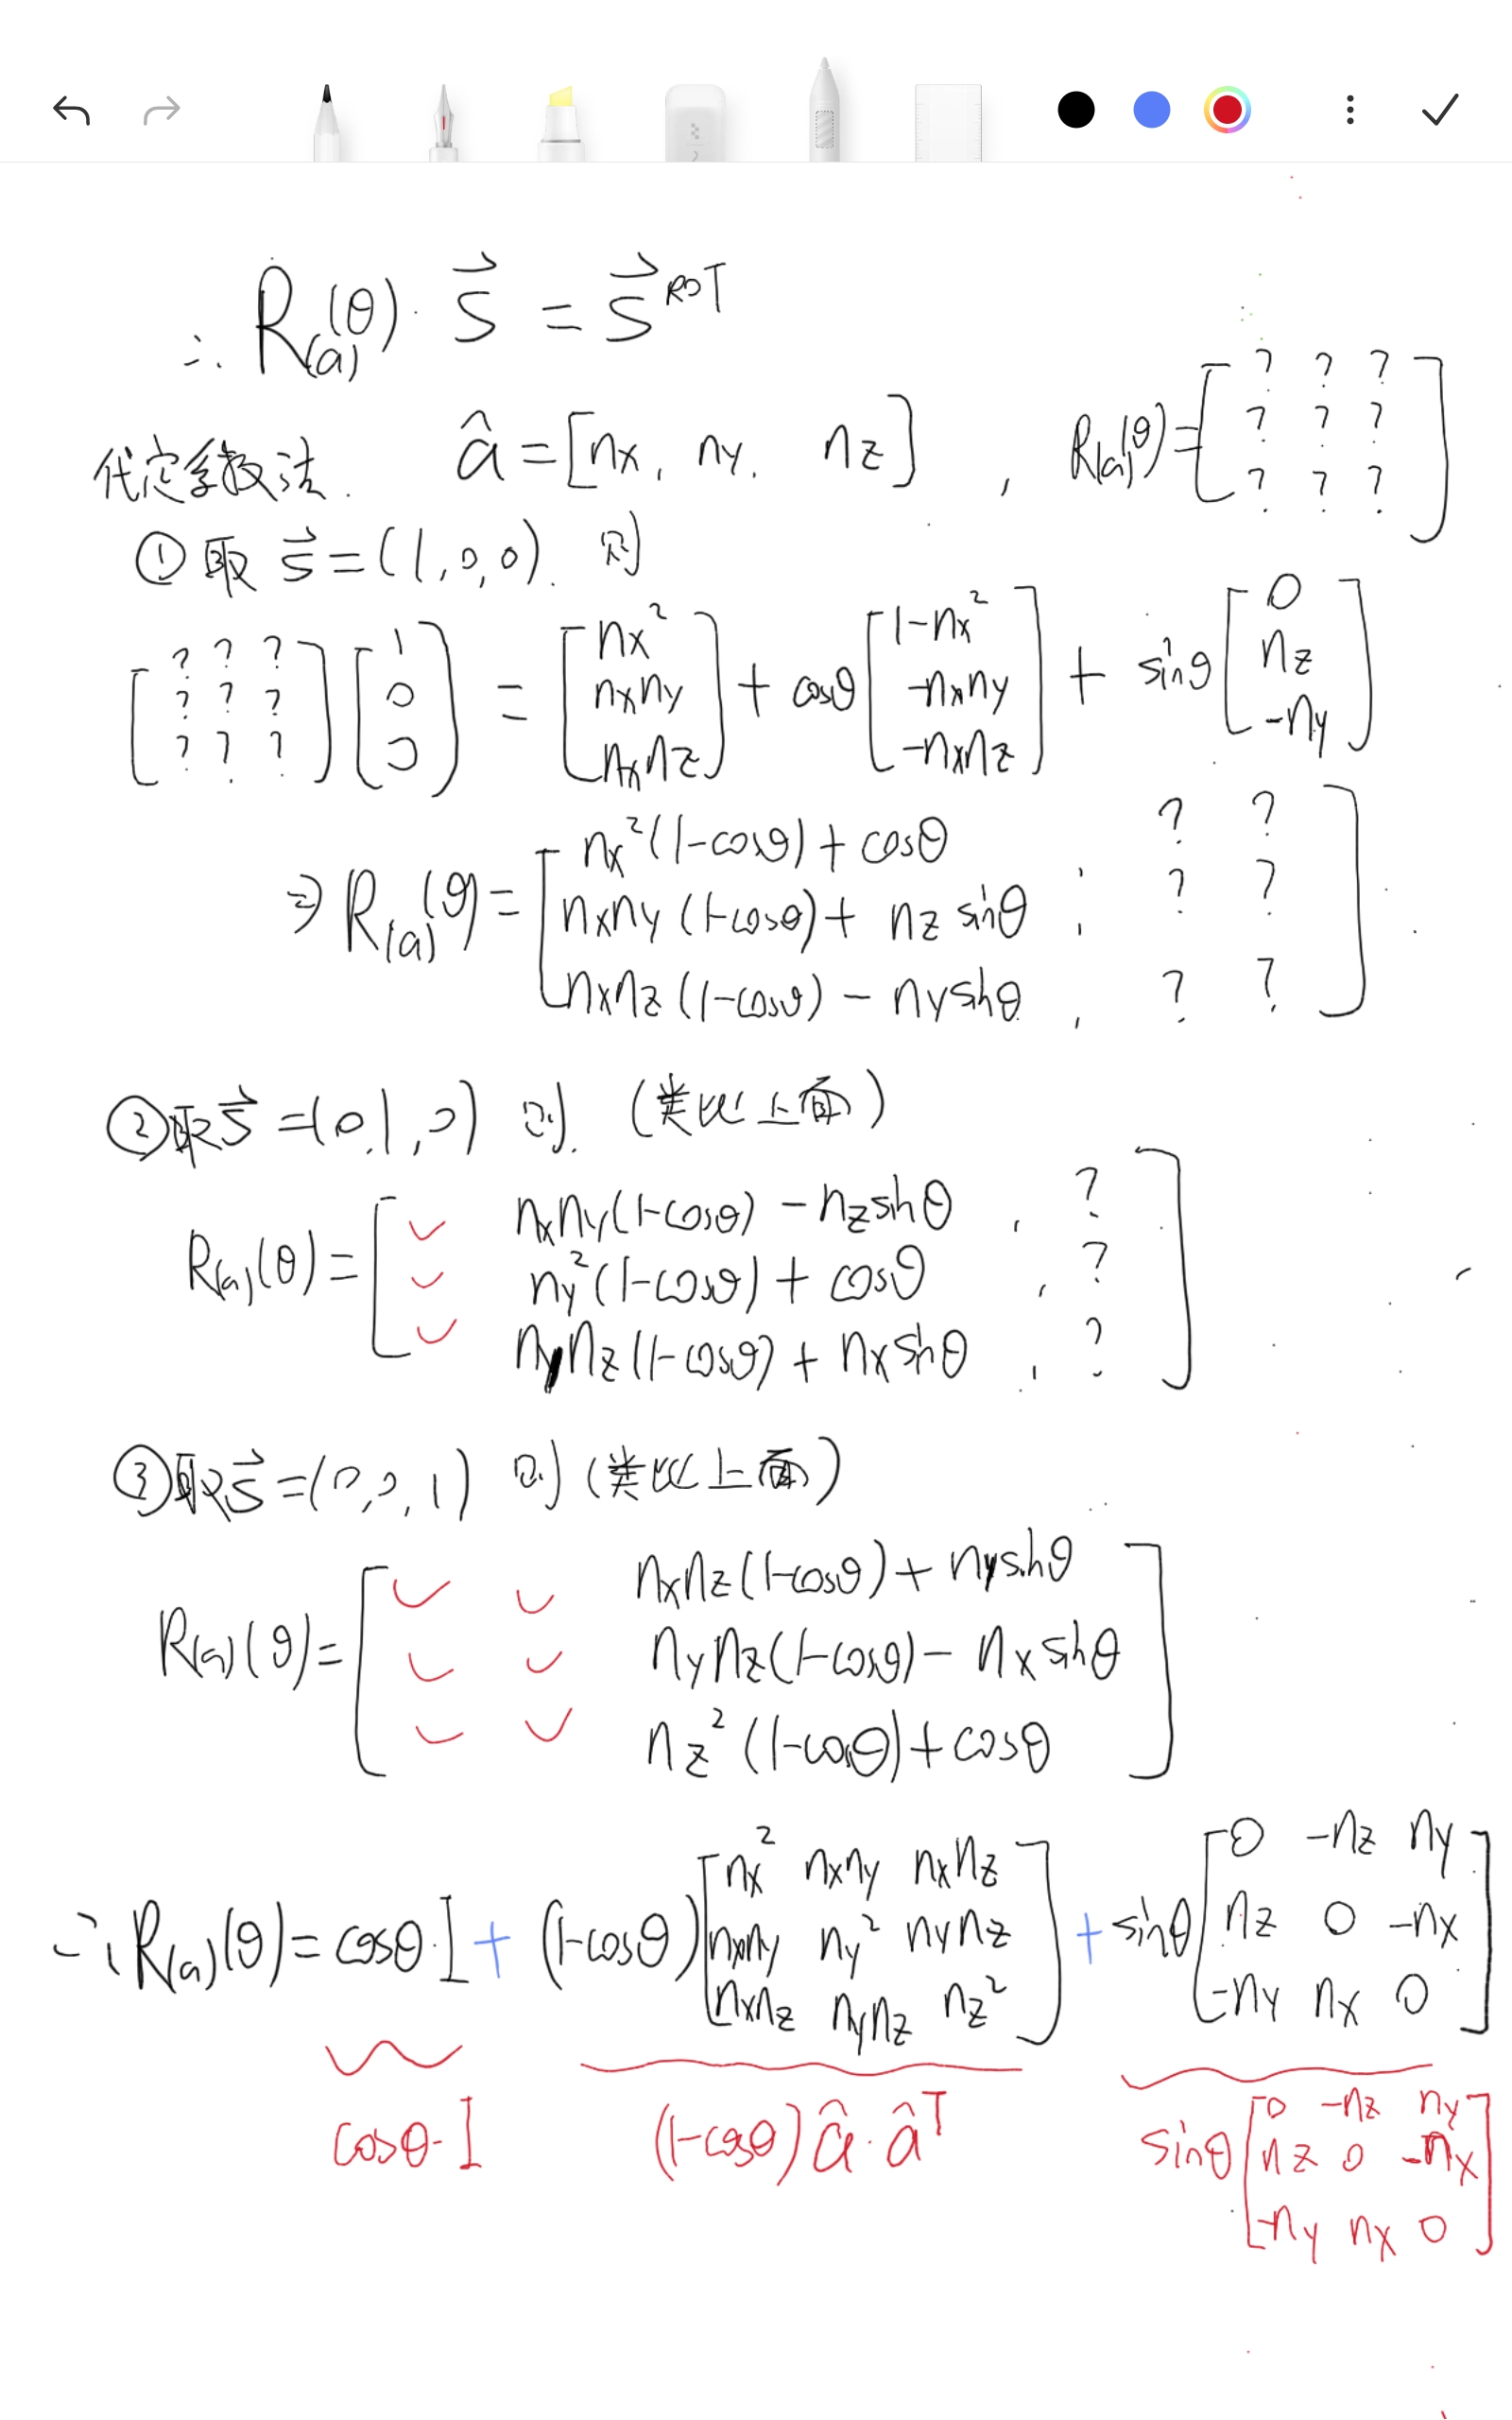 ∴ R(a)(θ) · S⃗ = S⃗^ROT
代定系数法. â = [nx, ny, nz] , R(a)(θ) = [? ? ?; ? ? ?; ? ? ?]
① 取 S⃗ = (1,0,0). 则
[? ? ?; ? ? ?; ? ? ?] [1; 0; 0] = [nx²; nxny; nxnz] + cosθ [1-nx²; -nxny; -nxnz] + sinθ [0; nz; -ny]
⇒ R(a)(θ) = [nx²(1-cosθ) + cosθ ? ?; nxny(1-cosθ) + nz sinθ , ? ?; nxnz(1-cosθ) - ny sinθ , ? ?]
② 取 S⃗ = (0,1,0) 则. (类比上面)
R(a)(θ) = [✓ nxny(1-cosθ) - nz sinθ , ?; ✓ ny²(1-cosθ) + cosθ , ?; ✓ nynz(1-cosθ) + nx sinθ , ?]
③ 取 S⃗ = (0,0,1) 则 (类比上面)
R(a)(θ) = [✓ ✓ nxnz(1-cosθ) + ny sinθ; ✓ ✓ nynz(1-cosθ) - nx sinθ; ✓ ✓ nz²(1-cosθ) + cosθ]
∴ R(a)(θ) = cosθ·I + (1-cosθ) [nx² nxny nxnz; nxny ny² nynz; nxnz nynz nz²] + sinθ [0 -nz ny; nz 0 -nx; -ny nx 0]
cosθ·I (1-cosθ) â·â^T sinθ [0 -nz ny; nz 0 -nx; -ny nx 0]